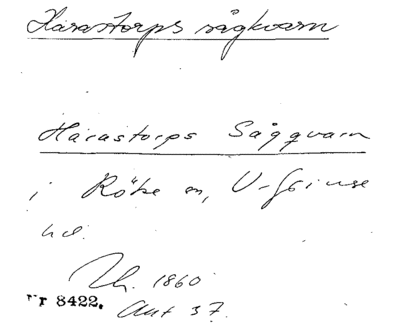 Härastorps sågkvarn
Härastorps Sågqvarn
i Röke sn, V-Göinge
hd.
Th. 1860
Nr 8422. Ant 37.